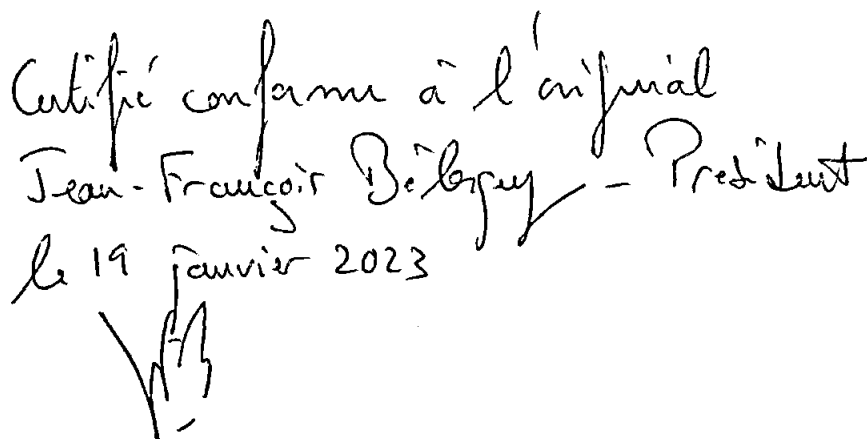 Certifié conforme à l'original
Jean-François - Président
le 19 janvier 2023